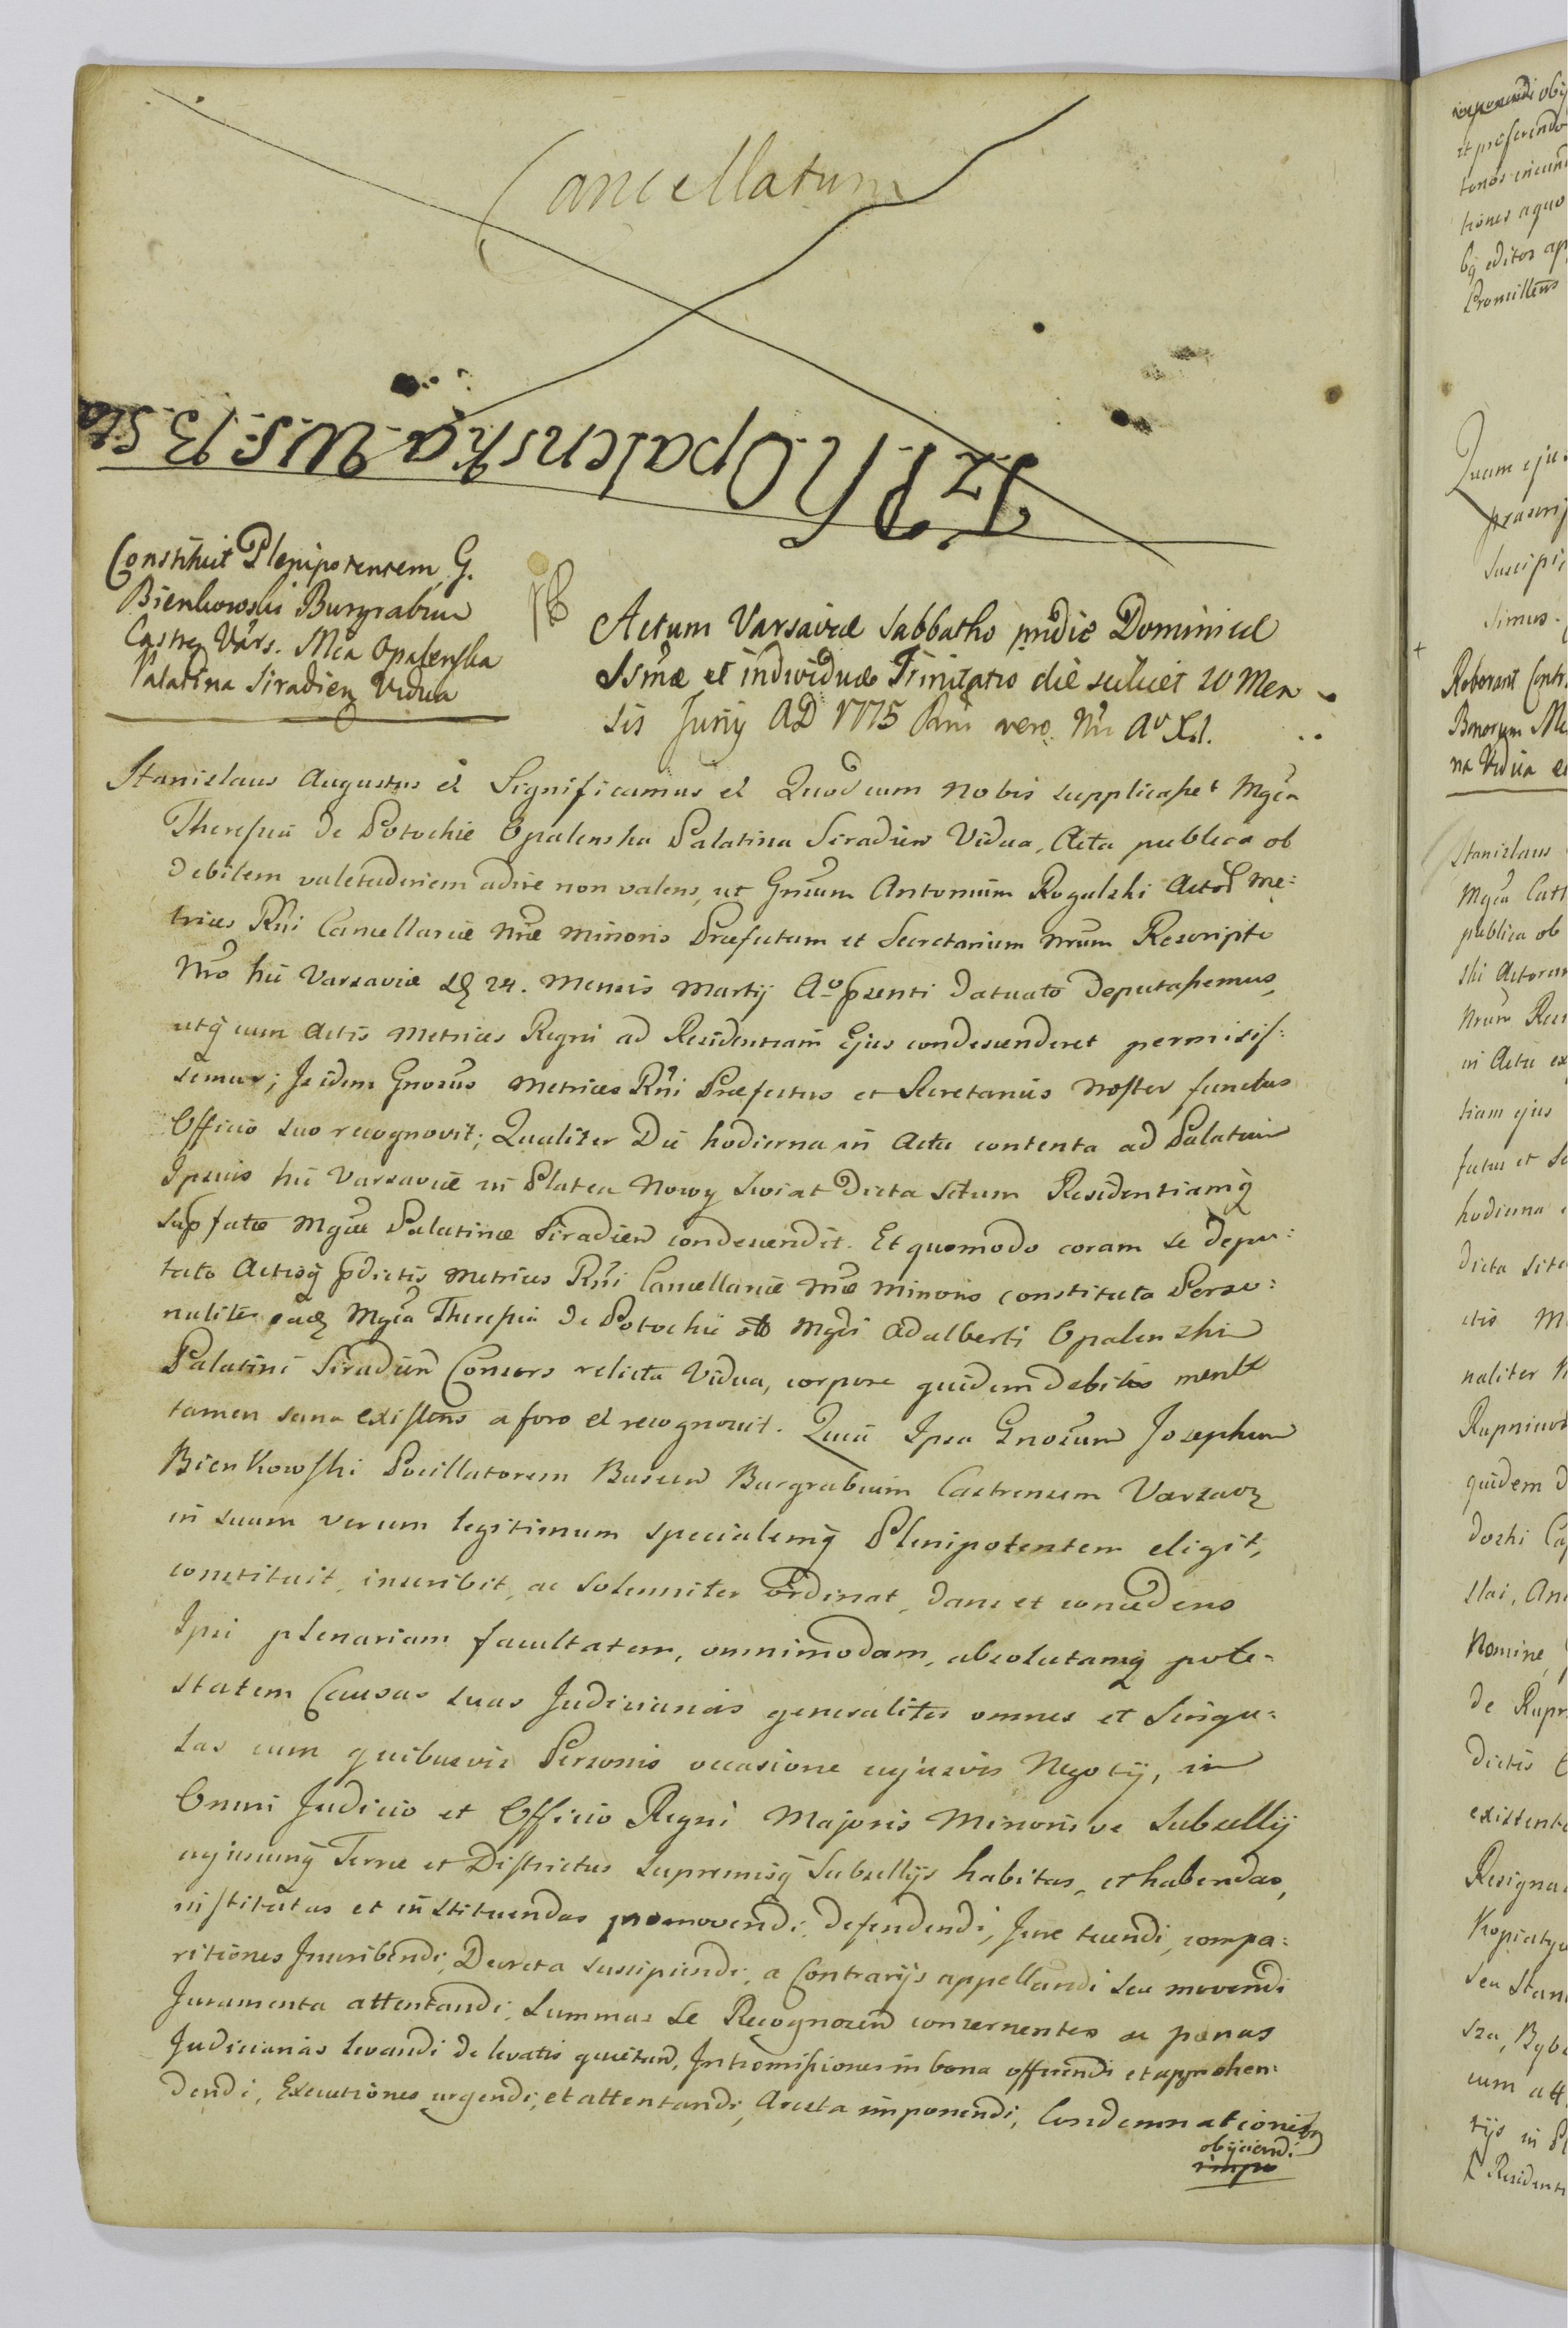 Cancellatum
T. z P. Opalenska W. S.
Constituit Plenipotentem G.
Bienkowski Burgrabium
Castren Vars. Mca Opalenska
Palatina Siradien Vidua
Actum Varsaviæ Sabbatho pridie Dominicæ
SSmæ et individuæ Trinitatis die scilicet 10 Men
sis Junij AD 1775 Rni vero Nri Aº XI.
Stanislaus Augustus et Significamus et Quod cum Nobis supplicasset Mgca
Theresia de Potockie Opalenska Palatina Siradien Vidua, Acta publica ob
debilem valetudinem adire non valens, ut Gnsum Antonium Rogalski Actor Me:
trices Rni Cancellariæ Nræ minoris Præfectum et Secretarium Nrum Rescripto
Nro hic Varsaviæ 24. Mensis Martij Aº psenti datuato deputassemus,
utq cum Actis Metrices Regni ad Residentiam Ejus condescenderet permisis:
semus; Is idem Gnosus Metrices Rni Præfectus et Secretarius Noster functus
Officio suo recognovit; Qualiter Die hodierna in Actu contenta ad Palatium
Ipsius hic Varsaviæ in Platea Nowy Swiat dicta situm Residentiamq
supfatæ Mgcæ Palatinæ Siradien condescendit. Et quomodo coram se depu:
tato Actisq pdictis Metrices Rni Cancellariæ Nræ Minoris constituta Perso:
naliter eadem Mgca Theresia de Potockie olim Mgci Adalberti Opalenski
Palatini Siradien Consors relicta Vidua, corpore quidem debilis mente
tamen sana existens a foro et recognovit. Quia Ipsa Gnosum Josephum
Bienkowski Pocillatorem Buscen Burgrabium Castrensem Varsavien
in suum verum legitimum specialemq Plenipotentem eligit,
constituit, inscribit, ac solenniter ordinat, dans et concedens
Ipsi plenariam facultatem, omnimodam, absolutamq pote-
statem Causas suas Judiciarias generaliter omnes et Singu:
las cum quibusvis Personis occasione cujusvis Negotij, in
Omni Judicio et Officio Regni Majoris Minorisve Subsellij
cujuscunq Terræ et Districtus Supremisq Subsellijs habitas, et habendas,
institutas et instituendas promovendi, defendendi, Jure tuendi, compa:
ritiones Inscribendi, Decreta suscipiendi, a Contrarijs appellandi seu movendi
Juramenta attentandi, Summas se Recognoscen concernentes ac pænas
Judiciarias levandi de levatis quietand, Intromissiones in bona efficiendi et apprehen:
dendi, Executiones urgendi, et attentandi, Aresta imponendi, Condemnationes
obijciendi
impo